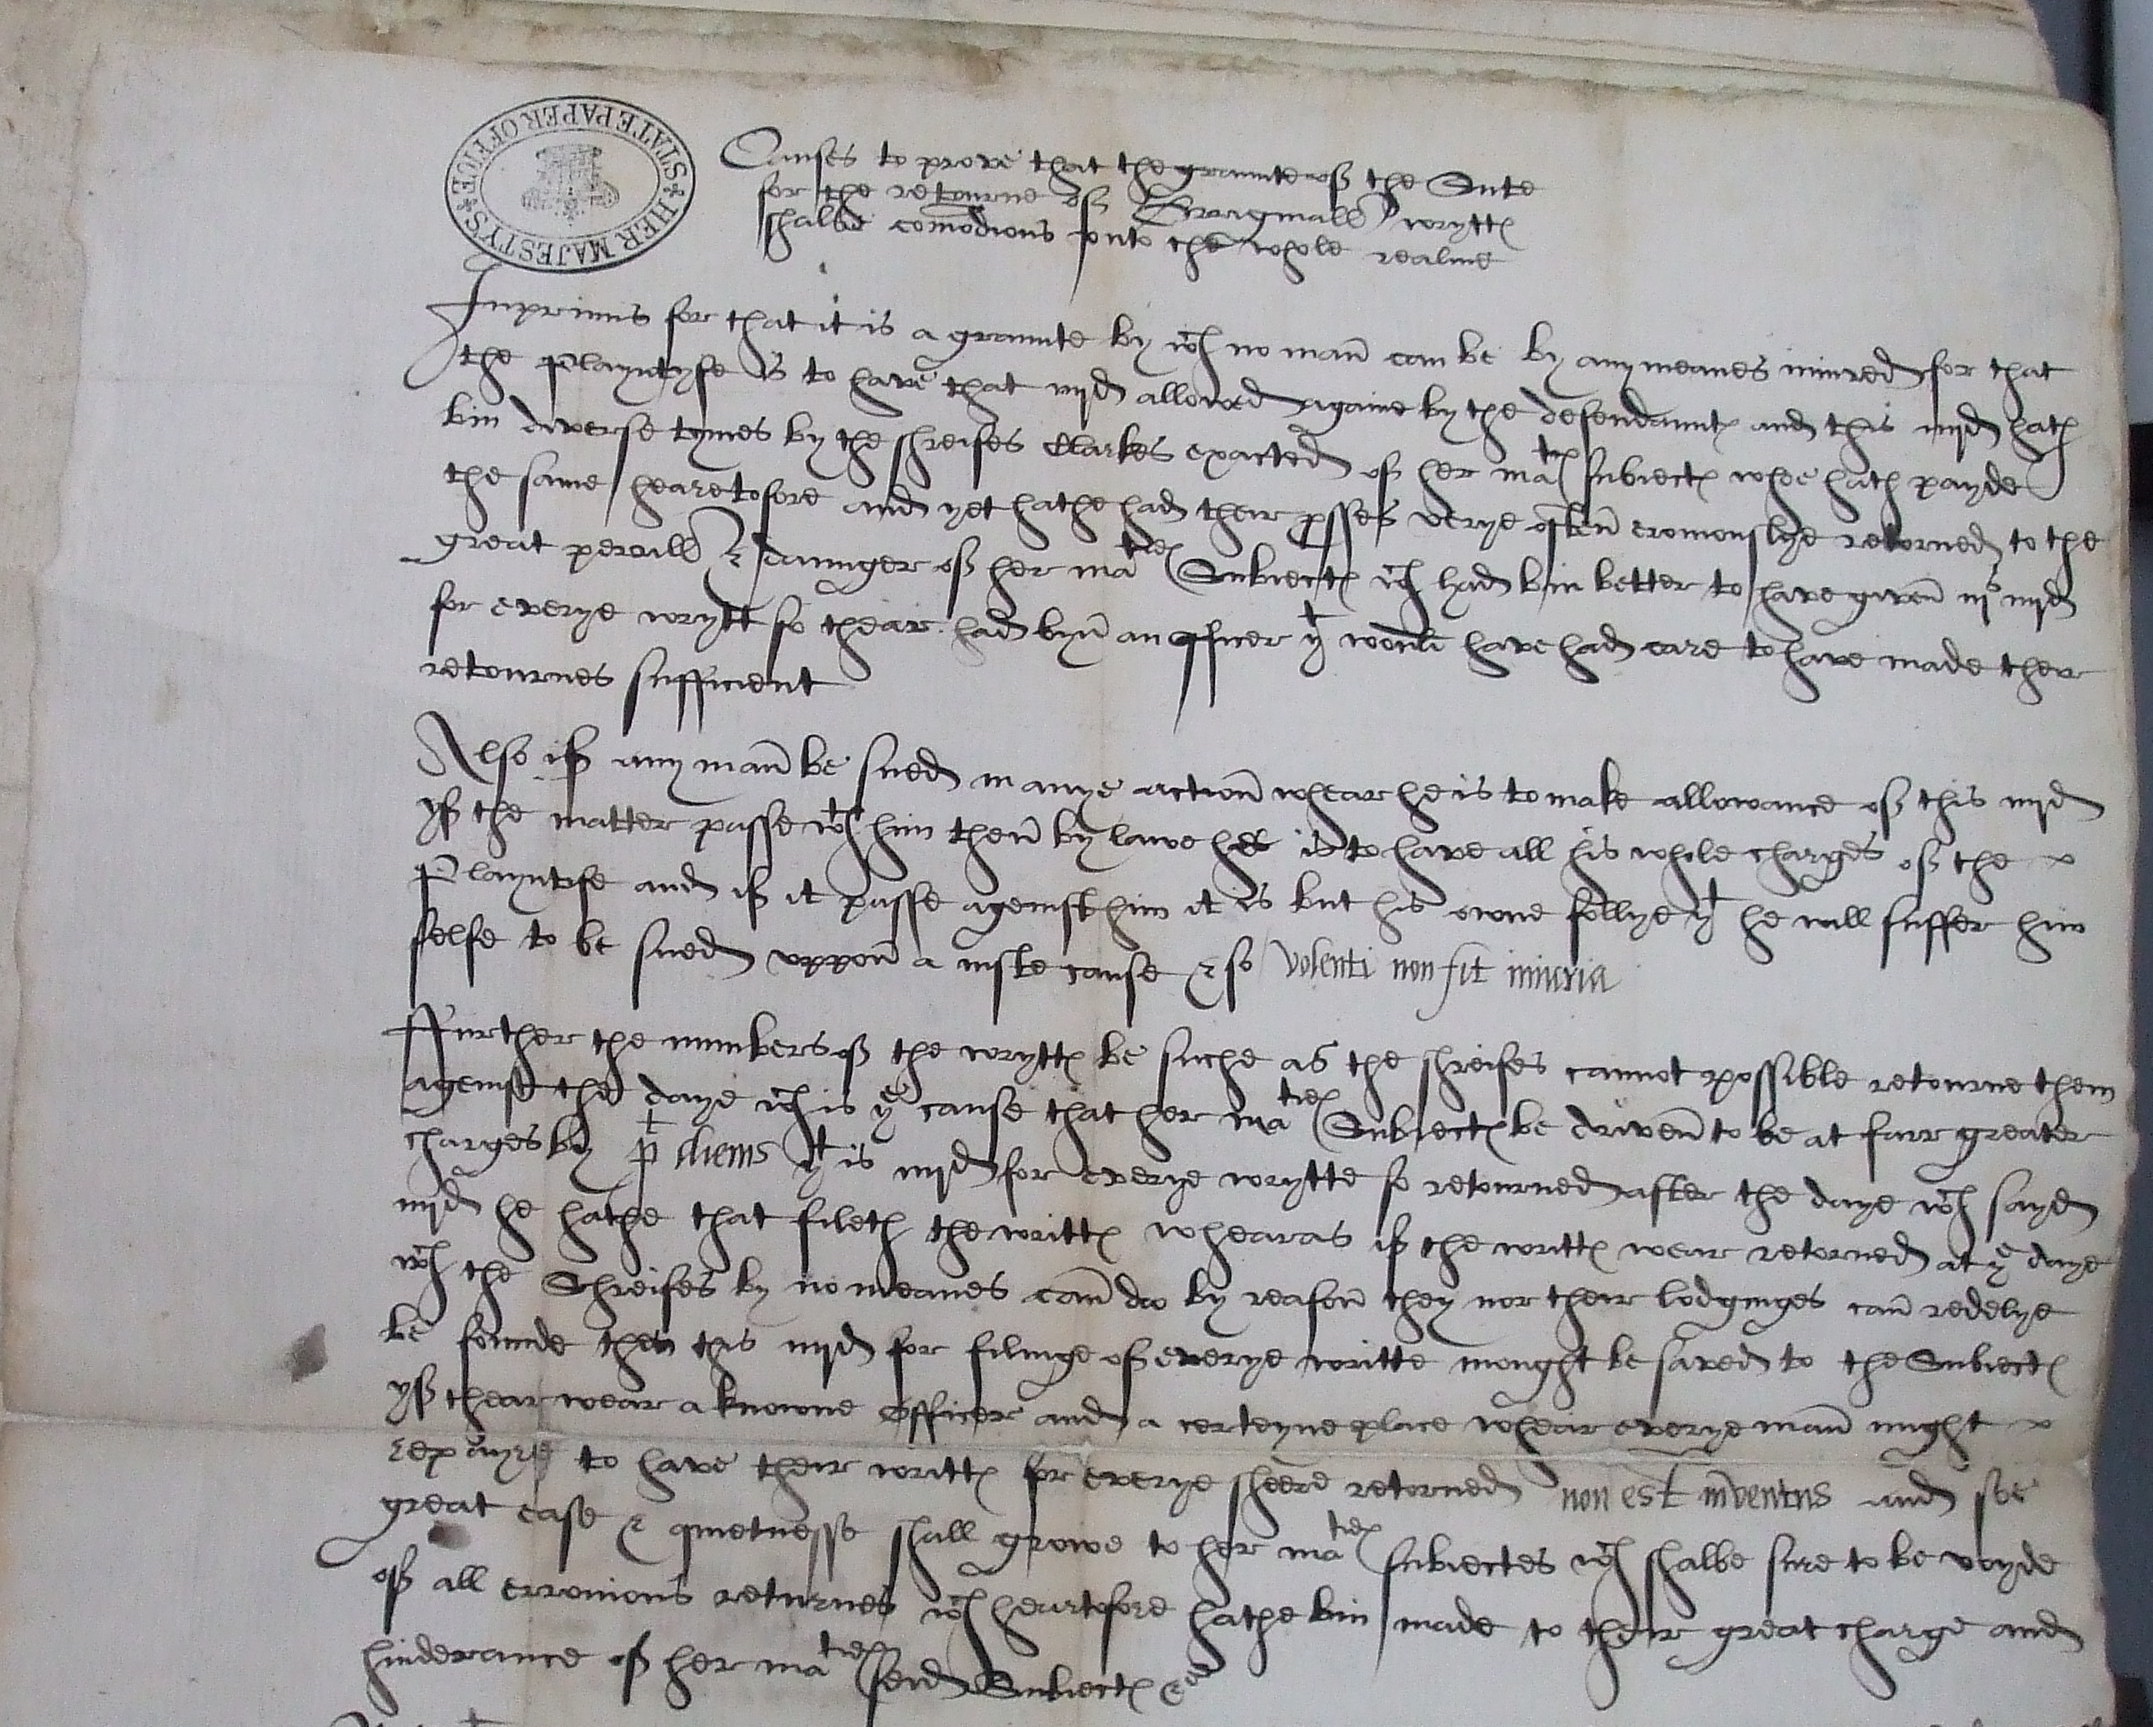 HER MAJESTY'S STATE PAPER OFFICE
Causes to prove that the graunte off the Sute
for the retourne off Orriginall wrytt℮
shalbe comodious vnto the whole realme
Inprimis for that it is a graunte by wch no man can be by any meanes iniured for that
the Playntyfe is to have that iiijd allowed againe by the defendaunt℮ and this iiijd hath
bin diverse tymes by the shreifes Clarkes exacted off her maties subiect℮ whoe hath payde
the same hearetofore and yet hathe had their pcsses verye often eroniouslye retorned to the
great perrill & daunger off her maties Subiect℮ wch had bin better to have given ijs iiijd
for everye wrytt so thear had byn an officer yt would have had care to have made ther
retournes sufficient
Also iff any man be sued in anye action whear he is to make allowance off this iiijd
yff the matter passe wth him then by lawe hee is to have all his whole charges off the
Playntife and iff it passe ageinst him it is but his owne follye yt he will suffer him
selfe to be sued vppon a iuste cause & so volenti non fit iniuria
Further the numbers off the wrytt℮ be suche as the shreifes cannot possible retourne them
ageinst the daye wch is ye cause that her maties Subiect℮ be driven to be at farr greater
charges by pt diems yt is iiijd for everye wrytte so retourned after the daye wch sayd
iiijd he hathe that fileth the writt℮ whearas iff the writt℮ wear retorned at ye daye
wch the Shreifes by no meanes can doo by reason they nor their lodginges can redelye
be founde then this iiijd for filinge off everye writte mought be saved to the Subiect℮
yff thear wear a knowne officer and a certeyne place whear everye man might
repayre to have their writt℮ for everye sheere retorned non est inventus and soe
great ease & quietnesse shall growe to her maties subiectes wch shalbe sure to be voyde
off all erronious returnes wch heartofore hathe bin made to their great charge and
hinderance off her maties seid Subiect℮ &c